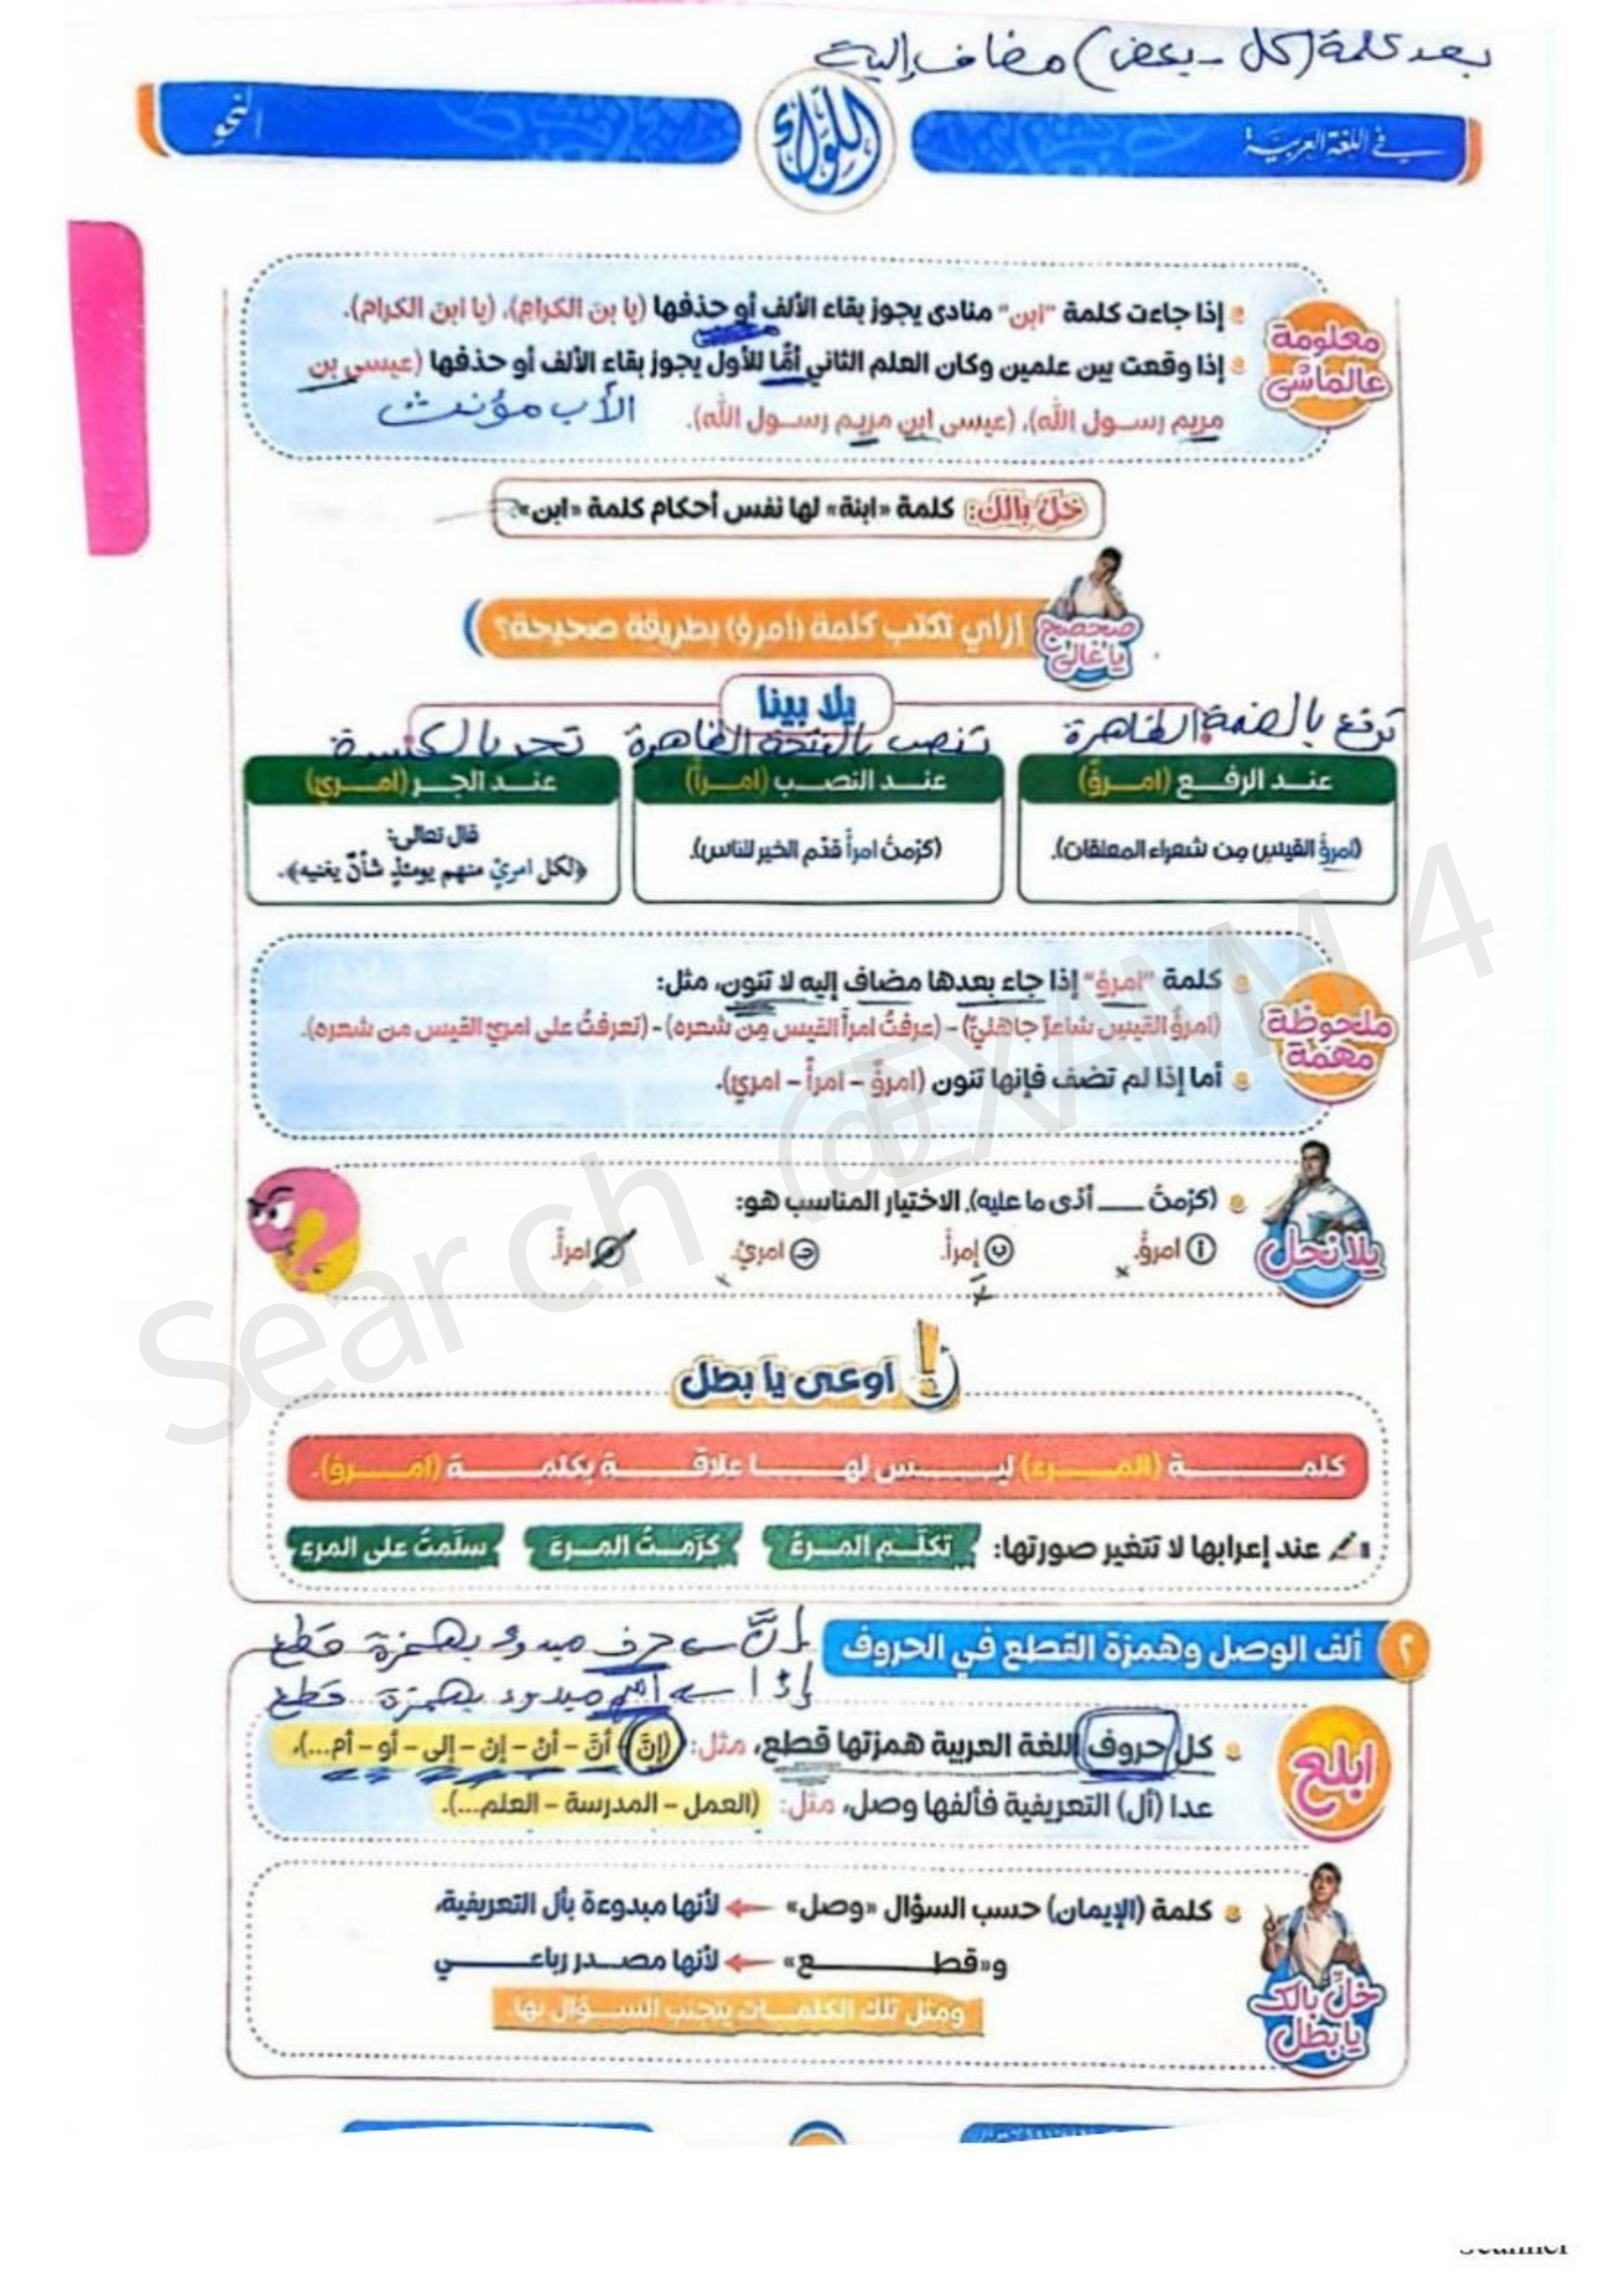 بعد كلمة (كل - بعض) مضاف إلية
في اللغة العربية
اللواء
نحو
معلومة عالماشى
إذا جاءت كلمة "ابن" منادى يجوز بقاء الألف أو حذفها (يا بن الكرام)، (يا ابن الكرام).
إذا وقعت بين علمين وكان العلم الثاني أمًّا للأول يجوز بقاء الألف أو حذفها (عيسى بن
مريم رسول الله)، (عيسى ابن مريم رسول الله).
الأب مؤنث
خلي بالك: كلمة «ابنة» لها نفس أحكام كلمة «ابن»
صحصح يا غالي
إزاي تكتب كلمة (امرؤ) بطريقة صحيحة؟
يلا بينا
ترفع بالضمة الظاهرة
تنصب بالفتحة الظاهرة
تجر بالكسرة
عند الرفع (امرؤٌ)
عند النصب (امرأً)
عند الجر (امرئٍ)
(امرؤُ القيس من شعراء المعلقات).
(كرّمتُ امرأً قدّم الخير للناس).
قال تعالى:
﴿لكل امرئٍ منهم يومئذٍ شأنٌ يغنيه﴾.
ملحوظة مهمة
كلمة "امرؤ" إذا جاء بعدها مضاف إليه لا تنون، مثل:
(امرؤُ القيس شاعرٌ جاهليٌّ) – (عرفتُ امرأَ القيس من شعره) – (تعرفتُ على امرئِ القيس من شعره).
أما إذا لم تضف فإنها تنون (امرؤٌ – امرأً – امرئٍ).
يلا نحل
(كرّمتُ ____ أدّى ما عليه). الاختيار المناسب هو:
أ امرؤٌ.
ب إمرأً.
ج امرئٍ.
امرأً.
اوعى يا بطل
كلمة (المرء) ليس لها علاقة بكلمة (امرؤ).
عند إعرابها لا تتغير صورتها:
تكلّم المرءُ
كرّمتُ المرءَ
سلّمتُ على المرءِ
٢ ألف الوصل وهمزة القطع في الحروف
إنَّ ← حرف مبدوء بهمزة قطع
إذا ← اسم مبدوء بهمزة قطع
ابلع
كل حروف اللغة العربية همزتها قطع، مثل: (إنّ – أنّ – أن – إن – إلى – أو – أم...)،
عدا (أل) التعريفية فألفها وصل، مثل: (العمل – المدرسة – العلم...).
خلي بالك يا بطل
كلمة (الإيمان) حسب السؤال «وصل» ← لأنها مبدوءة بأل التعريفية،
و«قطع» ← لأنها مصدر رباعي
ومثل تلك الكلمات يتجنب السؤال بها.
Search @EXAM 4